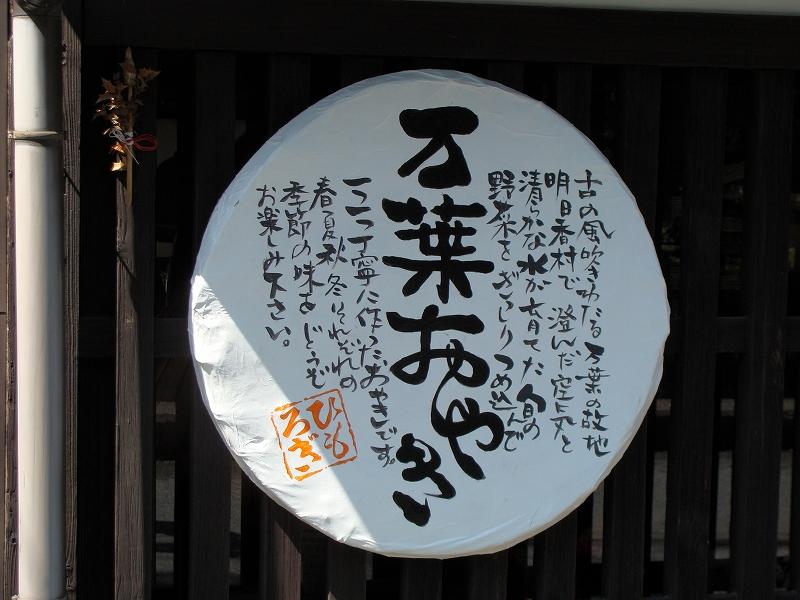 古の風吹きわたる万葉の故地
明日香村で 澄んだ空気と
清らかな水が育てた旬の
野菜をぎっしりつめ込んで
万葉おやき
一つ一つ丁寧に作ったおやきです。
春夏秋冬それぞれの
季節の味を どうぞ
お楽しみ下さい。
ひも
ろぎこ